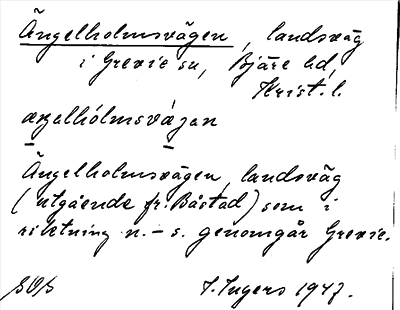 Ängelholmsvägen, landsväg
i Grevie sn, Bjäre hd,
Krist. l.
Ängelholmsvägen, landsväg
(utgående fr. Båstad) som i
riktning n. – s. genomgår Grevie.
I. Ingers 1947.